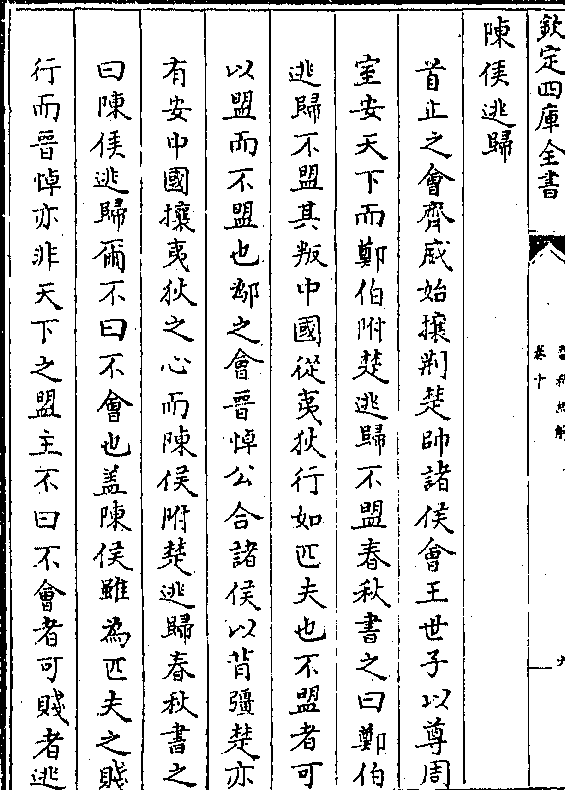 欽定四庫全書
卷十
陳侯逃歸
首止之會齊威始攘荆楚帥諸侯會王世子以尊周
室安天下而鄭伯附楚逃歸不盟春秋書之曰鄭伯
逃歸不盟其叛中國從夷狄行如匹夫也不盟者可
以盟而不盟也鄬之會晉悼公合諸侯以背彊楚亦
有安中國攘夷狄之心而陳侯附楚逃歸春秋書之
曰陳侯逃歸爾不曰不會也盖陳侯雖為匹夫之賤
行而晉悼亦非天下之盟主不曰不會者可賤者逃